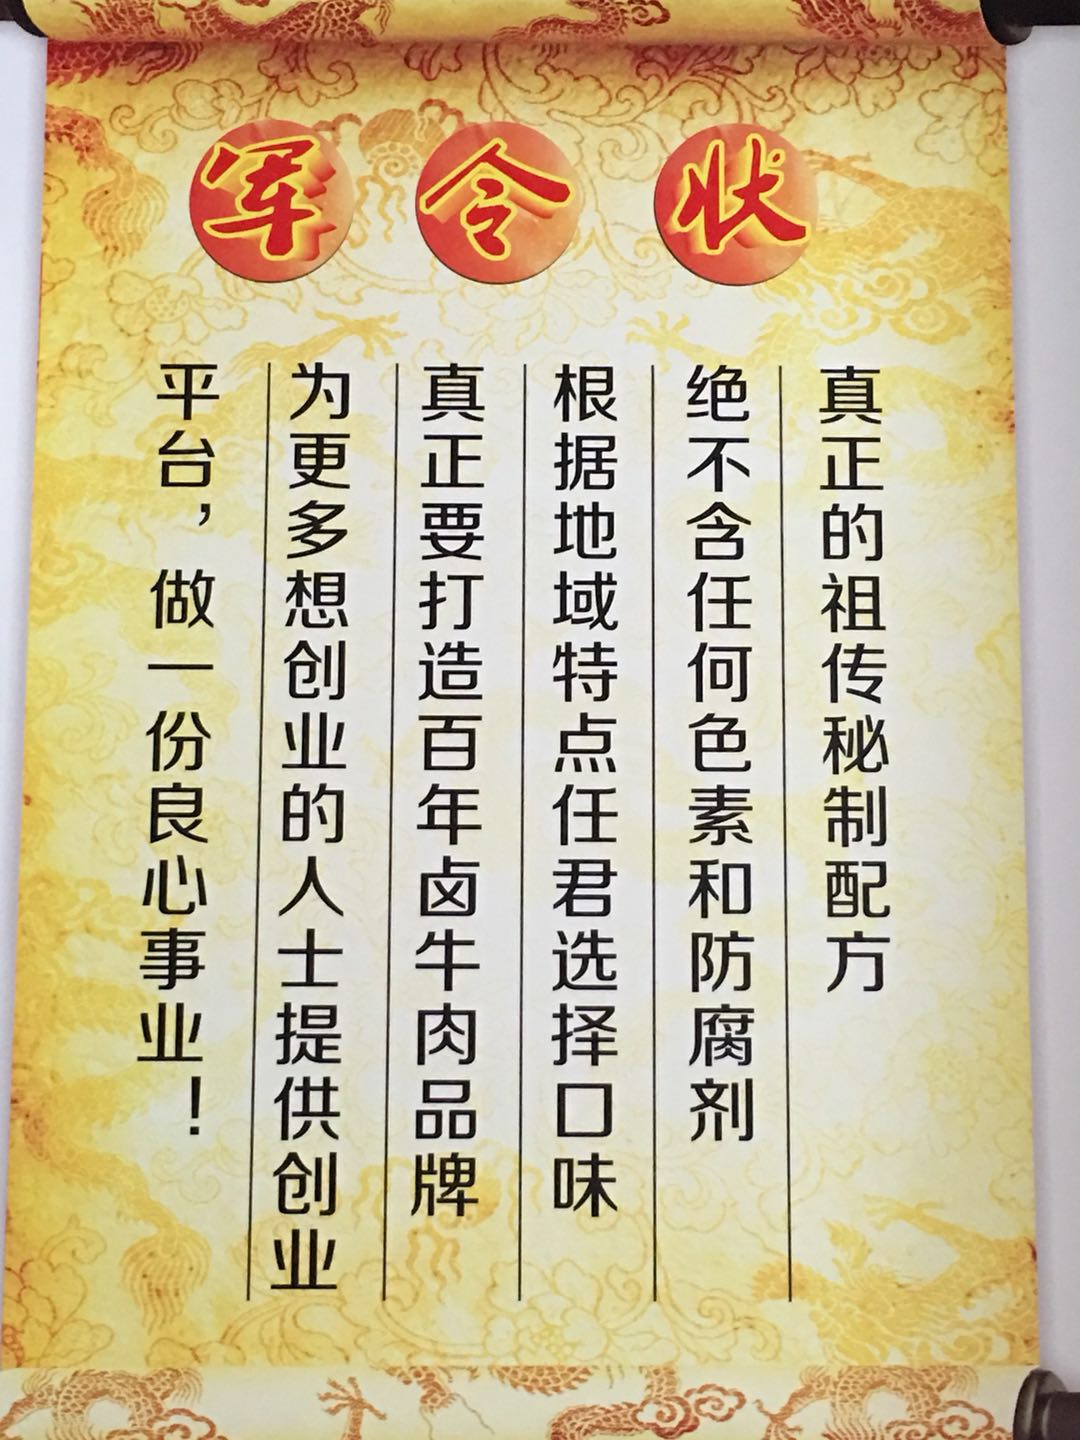 军令状
真正的祖传秘制配方
绝不含任何色素和防腐剂
根据地域特点任君选择口味
真正要打造百年卤牛肉品牌
为更多想创业的人士提供创业
平台，做一份良心事业！